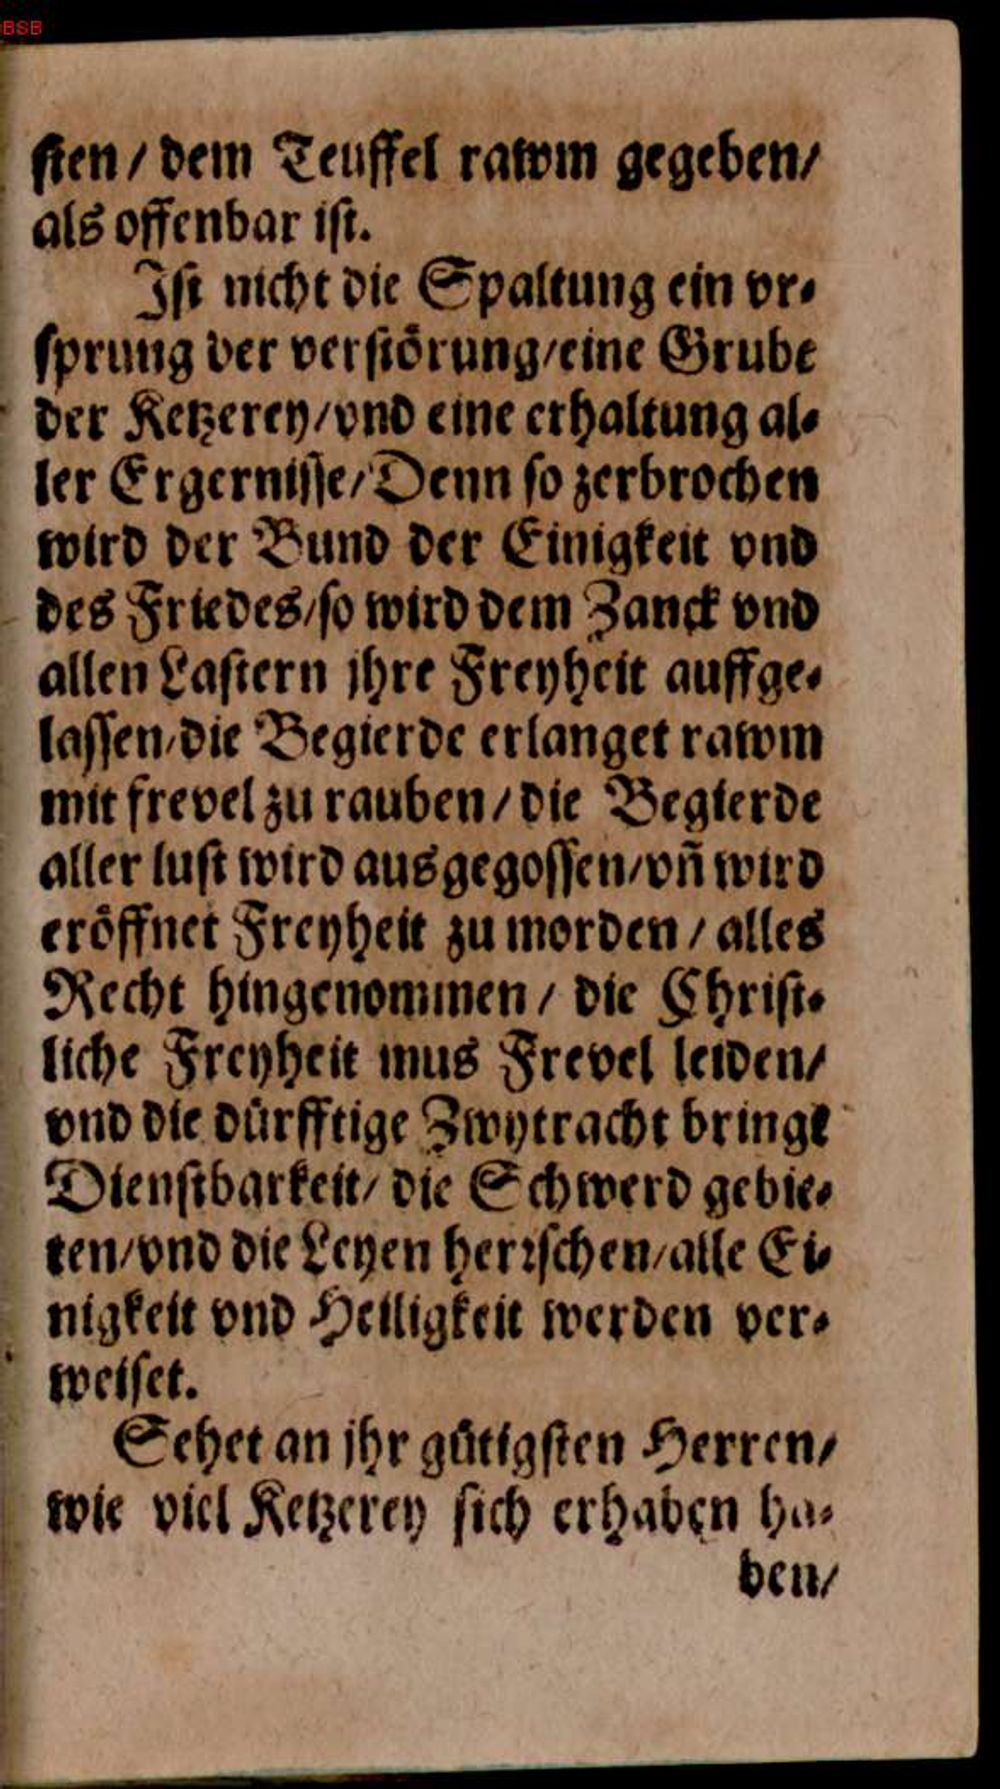 BSB
sten / dem Teuffel rawm gegeben/
als offenbar ist.
Ist nicht die Spaltung ein vr-
sprung der verstörung/eine Grube
der Ketzerey/vnd eine erhaltung al-
ler Ergernisse/Denn so zerbrochen
wird der Bund der Einigkeit vnd
des Friedes/so wird dem Zanck vnd
allen Lastern jhre Freyheit auffge-
lassen/die Begierde erlanget rawm
mit frevel zu rauben / die Begierde
aller lust wird ausgegossen/vñ wird
eröffnet Freyheit zu morden / alles
Recht hingenommen / die Christ-
liche Freyheit mus Frevel leiden/
vnd die dürfftige Zwytracht bringt
Dienstbarkeit/ die Schwerd gebie-
ten/vnd die Leyen herrschen/alle Ei-
nigkeit vnd Heiligkeit werden ver-
weiset.
Sehet an jhr gütigsten Herren/
wie viel Ketzerey sich erhaben ha-
ben/